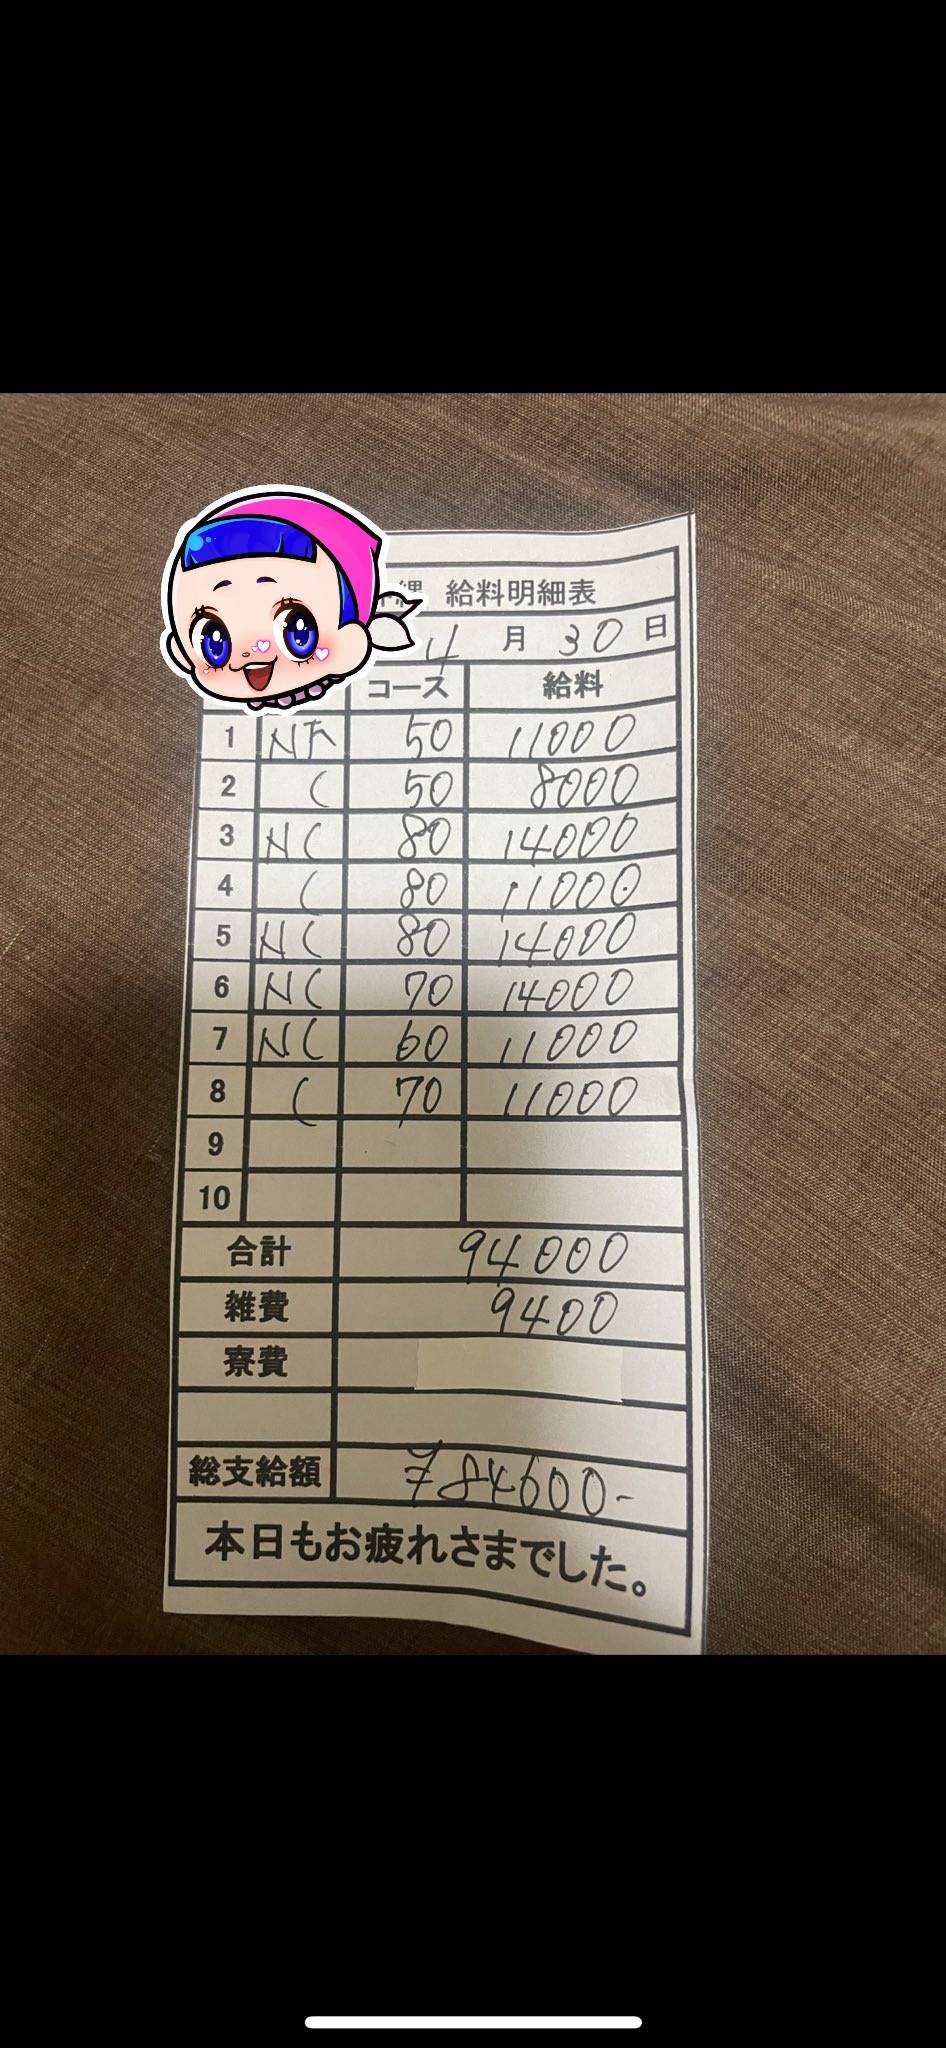 縄 給料明細表
4 月 30 日
コース 給料
1 NF 50 11000
2 C 50 8000
3 NC 80 14000
4 C 80 11000
5 NC 80 14000
6 NC 70 14000
7 NC 60 11000
8 C 70 11000
9
10
合計 94000
雑費 9400
寮費
総支給額 ¥84600-
本日もお疲れさまでした。